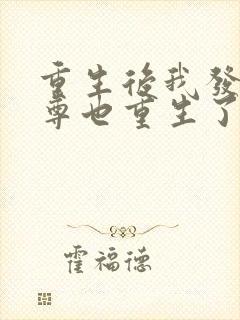 重生後我發
尊也重生了
霍福德